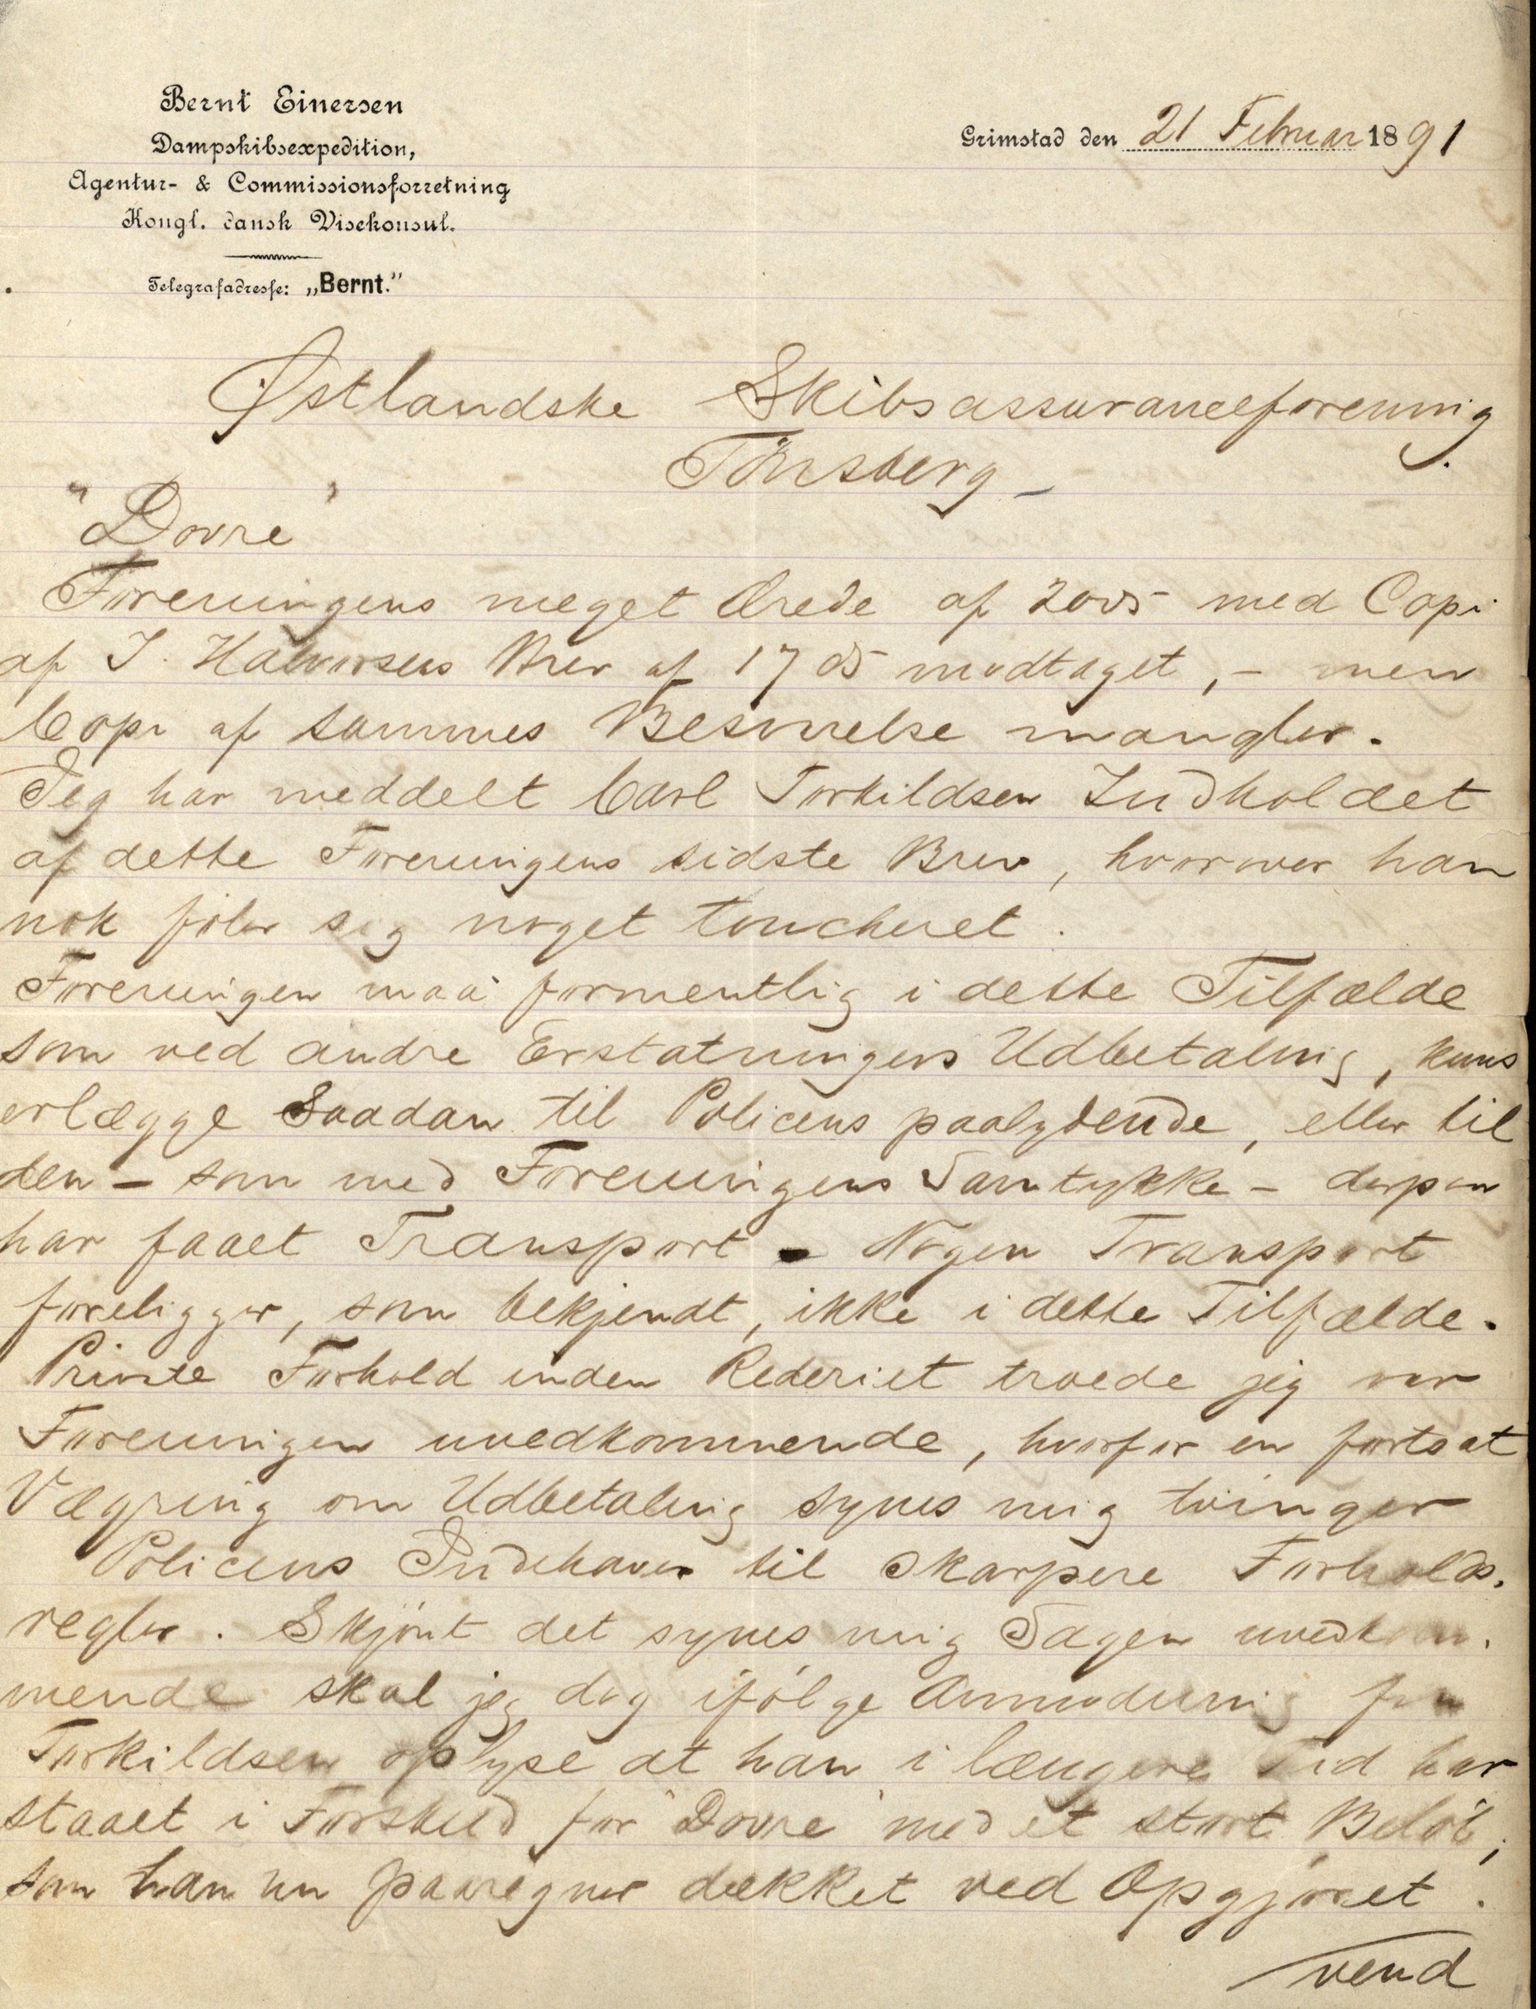 Bernt Einersen
Dampskibsexpedition,
Agentur- & Commissionsforretning
Kongl. dansk Visekonsul.
Telegrafadresse: „Bernt."
Grimstad den 21 Februar 1891
Østlandske Skibsassuranceforening
Tönsberg -
"Dovre"
Foreningens meget Ærede af 20 ds med Copi
af J. Halvorsens Brev af 17 ds modtaget, - men
Copi af sammes Besvarelse mangler.
Jeg har meddelt Carl Torkildsen Indholdet
af dette Foreningens sidste Brev, hvorover han
nok føler sig noget toucheret.
Foreningen maa formentlig i dette Tilfælde
som ved andre Erstatningers Udbetaling, kuns
erlægge Saadan til Policens paalydende, eller til
den - som med Foreningens Samtykke - derpaa
har faaet Transport - Nogen Transport
foreligger, som bekjendt, ikke i dette Tilfælde.
Private Forhold inden Rederiet troede jeg var
Foreningen uvedkommende, hvorfor en fortsat
Vægring om Udbetaling synes mig tvinger
Policens Indehaver til skarpere Forholds-
regler. Skjönt det synes mig Sagen uvedkom-
mende skal jeg dog ifölge Anmodning fra
Torkildsen oplyse at han i længere Tid har
staaet i Forskud for "Dovre" med et stort Belöb,
som han nu paaregner dækket ved Opgjöret.
vend